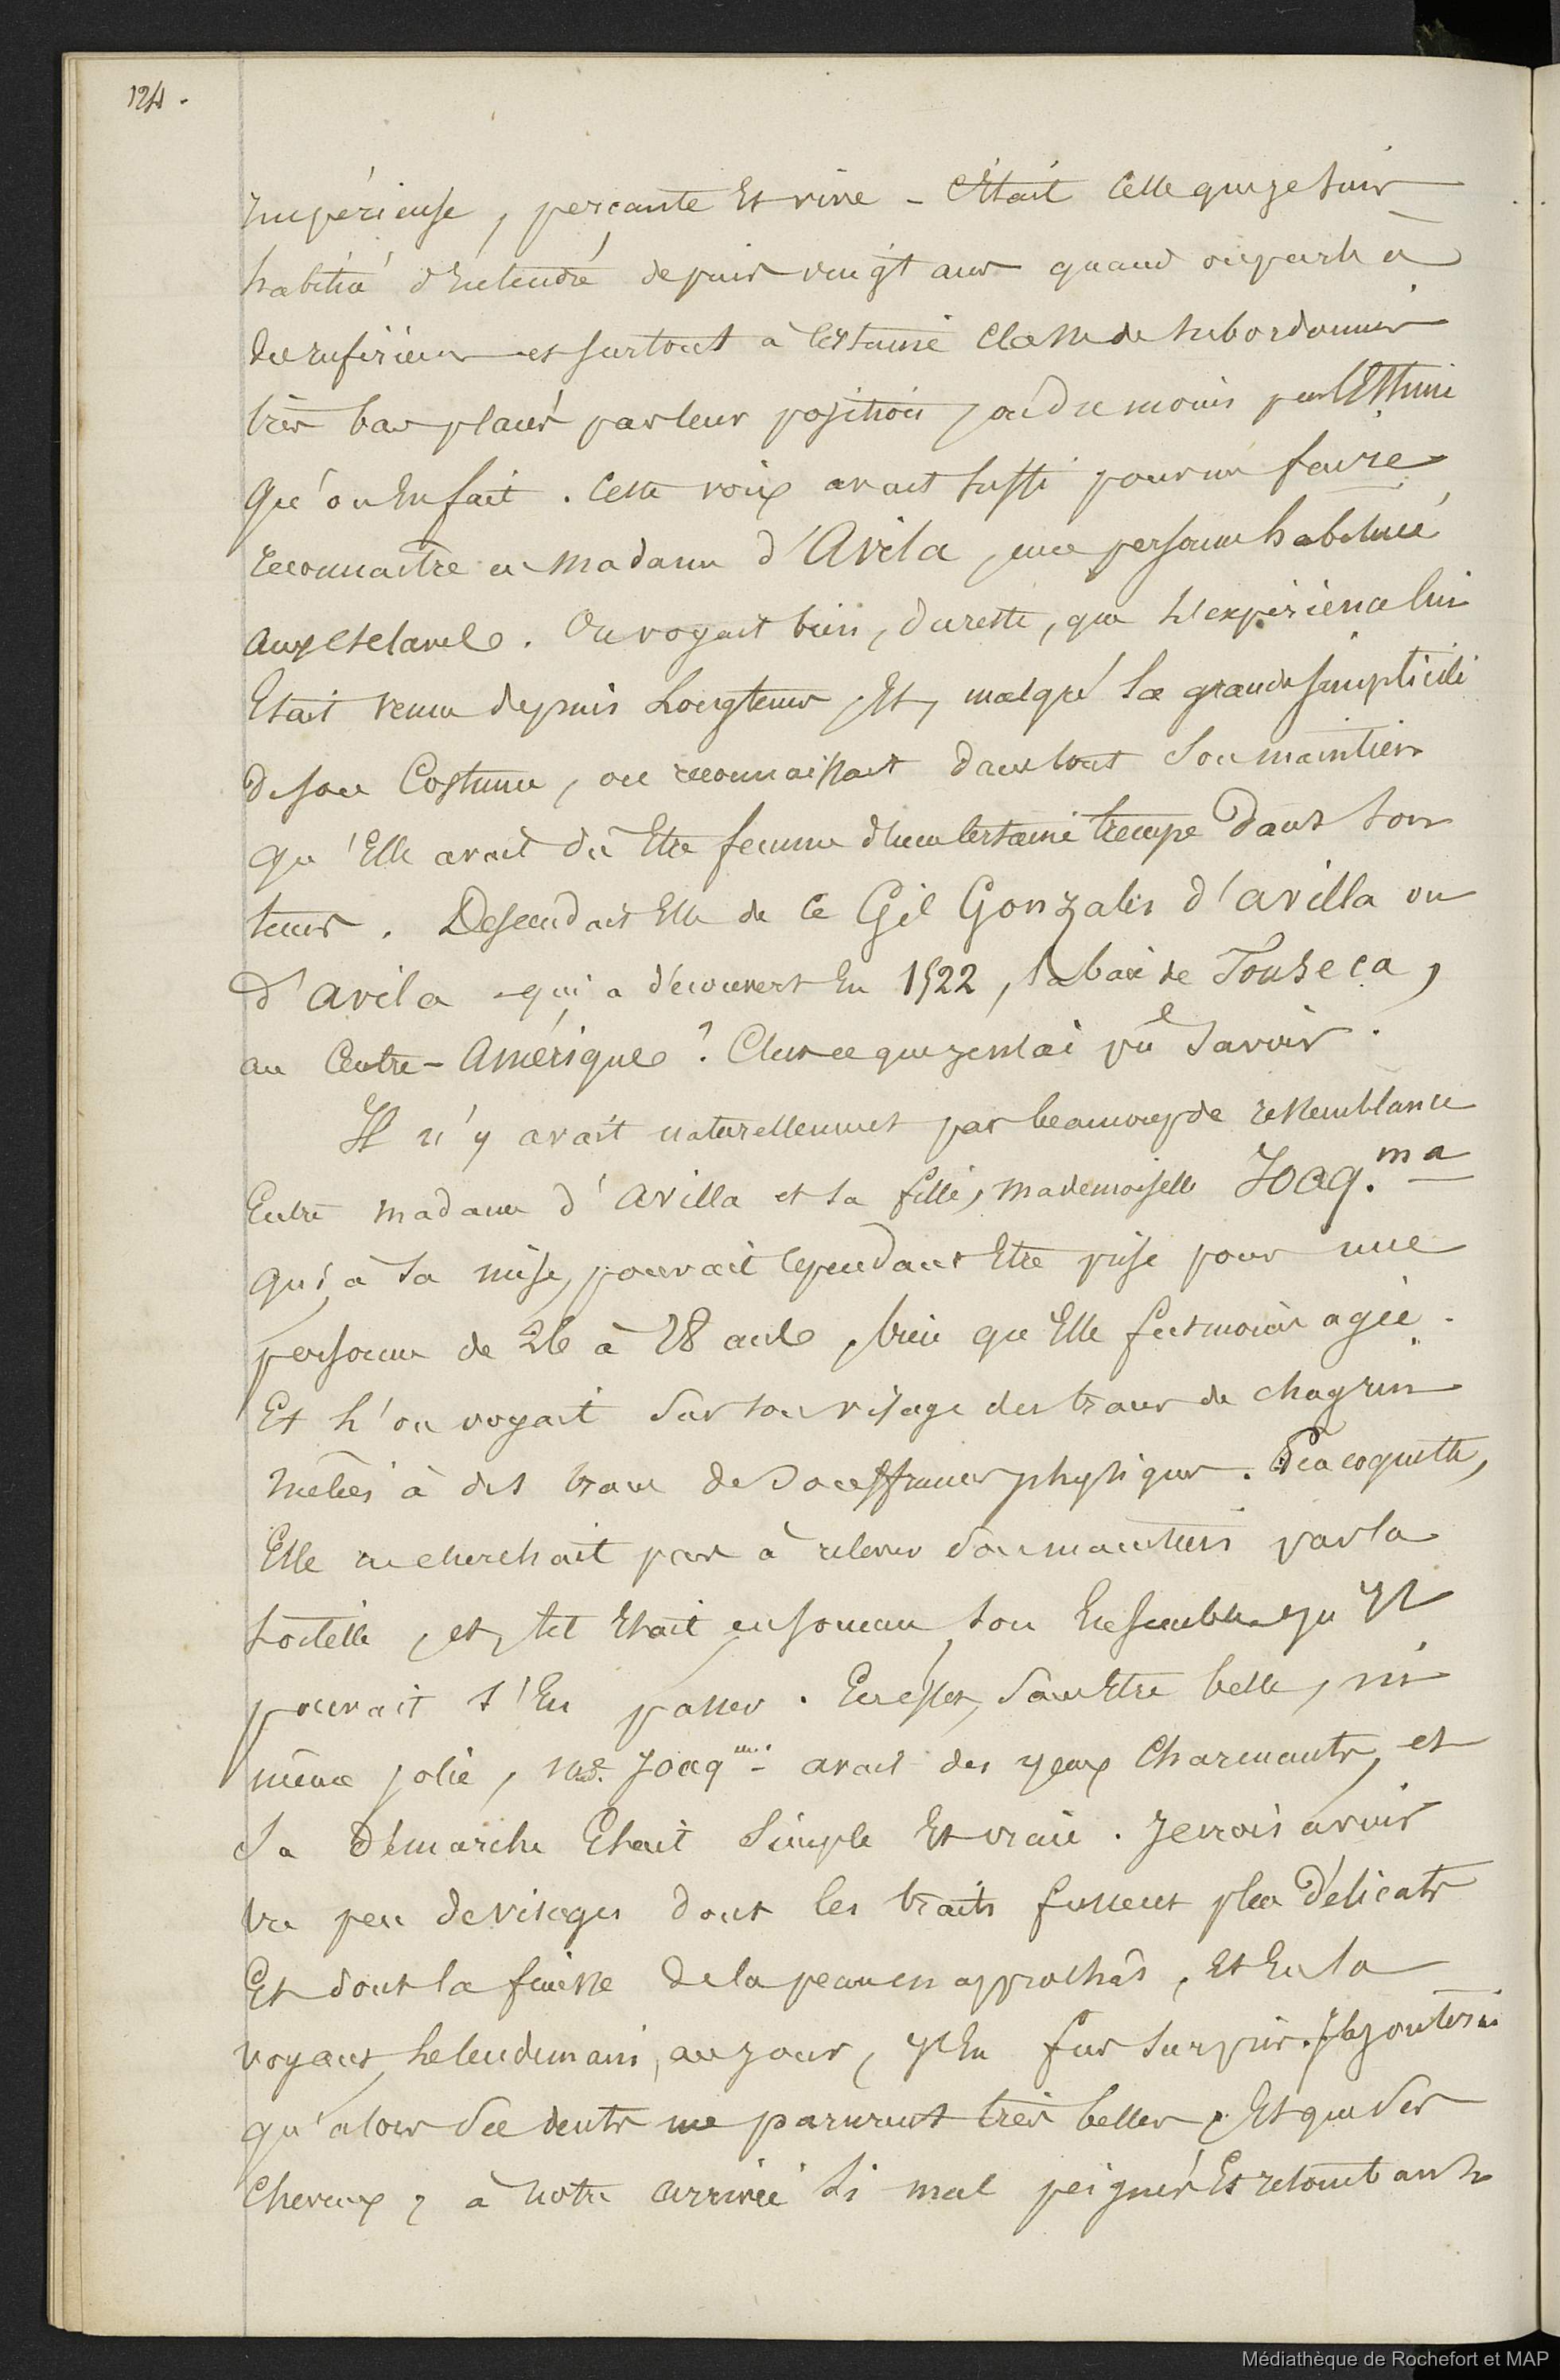 124.
Impérieuse, perçante Et vive - C'Etait Celle que je suis
habitué d'Entendre depuis vingt ans quand on parle à
des inférieurs et surtout à Certaine Classe de subordonnés
très bas placés par leur position, ou du moins par l'Estime
Qu'on En fait. Cette voix avait suffi pour me faire
reconnaitre en Madame d'Avila, une personne habituée
aux Esclaves. On voyait bien, du reste, que l'expérience lui
Etait venue depuis Longtems, Et, malgré la grande simplicité
de son Costume, on reconnaissait dans tout son maintien
qu'Elle avait dû Etre femme d'une Certaine trempe Dans son
tems. Descendait Elle de Ce Gil Gonzalès d'avilla ou
d'avila qui a découvert En 1522, la baie de Fonseca,
au Centre-Amérique? C'est ce que je n'ai pû le savoir.
Il n'y avait naturellement pas beaucoup de ressemblance
Entre Madame d'Avilla et sa fille, Mademoiselle Joaq.ma
qui, à sa mise, pouvait cependant Etre prise pour une
personne de 26 à 28 ans, bien qu'Elle fut moins agée.
Et l'on voyait sur son visage des traces de chagrin
mêlées à des traces de souffrances physiques. Peu coquette,
Elle ne cherchait pas à relever son maintien par la
toilette, et, tel Etait en somme son Ensemble qu'Il
pouvait s'En passer. En effet, sans Etre belle, ni
même jolie, Mad. Joaqma avait des yeux Charmants, et
sa démarche Etait simple Et vraie. Je crois avoir
vu peu de visages dont les traits fussent plus Délicats
Et dont la finesse de la peau en approchât, Et En la
voyant, le lendemain, au jour, j'En fus surpris. J'ajouterai
qu'alors ses dents me parurent très belles, Et que ses
Cheveux, à notre arrivée si mal peignés Et retombants
Médiathèque de Rochefort et MAP